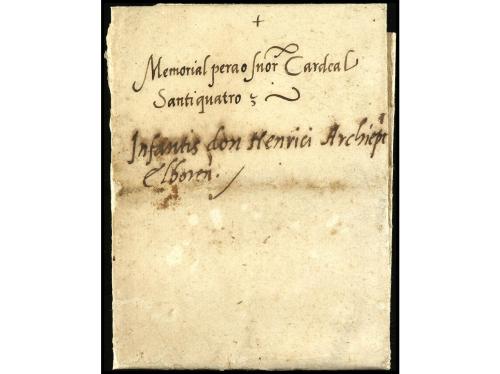 +
Memorial pera o Snor Cardeal
Santiquatro
Infantis don Henrici Archiepi
Elboren.